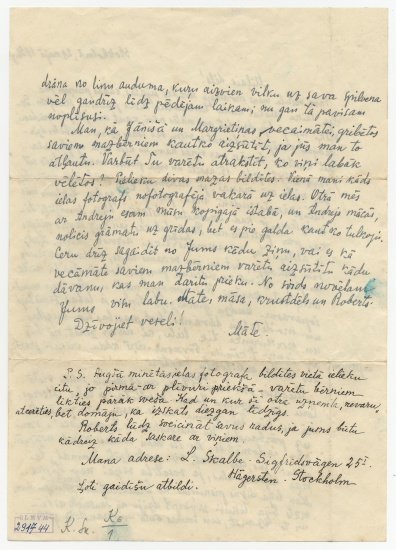 drāna no linu auduma, kuru aizvien vilku uz sava spilvena
vēl gandrīz līdz pēdējam laikam; nu gan tā pavisam
noplīsusi.
Man, kā Jānīša un Margrietiņas vecaimātei, gribētos
saviem mazbērniem kautko aizsūtīt, ja jūs man to
atļautu. Varbūt Tu varētu atrakstīt, ko viņi labāk
vēlētos? Pielieku divas mazas bildītes. Vienā mani kāds
ielas fotografs nofotografējis vakarā uz ielas. Otrā mēs
ar Andreju esam mūsu kopīgajā istabā, un Andrejs mācās,
nolicis grāmatu uz grīdas, bet es pie galda kautko tulkoju.
Ceru drīz sagaidīt no Jums kādu ziņu, vai es kā
vecāmāte saviem mazbērniem varētu aizsūtīt kādu
dāvanu, kas man darītu prieku. No sirds novēlam
Jums visu labu. Māte, māsa, krustdēls un Roberts.
Dzīvojiet veseli!
Māte.
P.S. Augšā minētās ielas fotografa bildītes vietā ielieku
citu, jo pirmā ar plīvuri priekšā varētu bērniem
likties pārāk sveša. Kad un kur šī otrā uzņemta, nevaru
atcerēties, bet domāju, ka izskats diezgan līdzīgs.
Roberts lūdz sveicināt savus radus, ja jums būtu
kādreiz kāda saskare ar viņiem.
Mana adrese: L. Skalbe - Sigfridsvägen 25
Hägersten - Stockholm
Ļoti gaidīšu atbildi.
29744
K. Sk. Ko/1